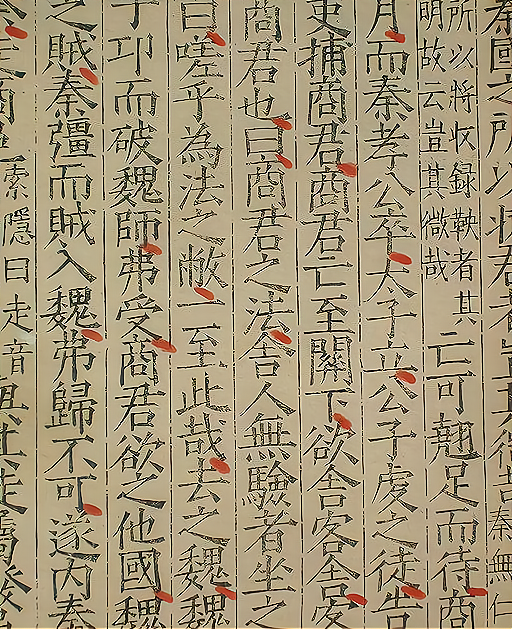 秦國之所以收君者豈其
秦無仁
所以將收録鞅者其
明故云豈其微哉
亡可翹足而待商
月而秦孝公卒太子立公子虔之徒告
吏捕商君商君亡至關下欲舍客舍客
商君也曰商君之法舍人無驗者坐之
曰嗟乎為法之敝一至此哉去之魏魏
子卬而破魏師弗受商君欲之他國魏
之賊秦彊而賊入魏弗歸不可遂内秦
走商邑索隱曰走音